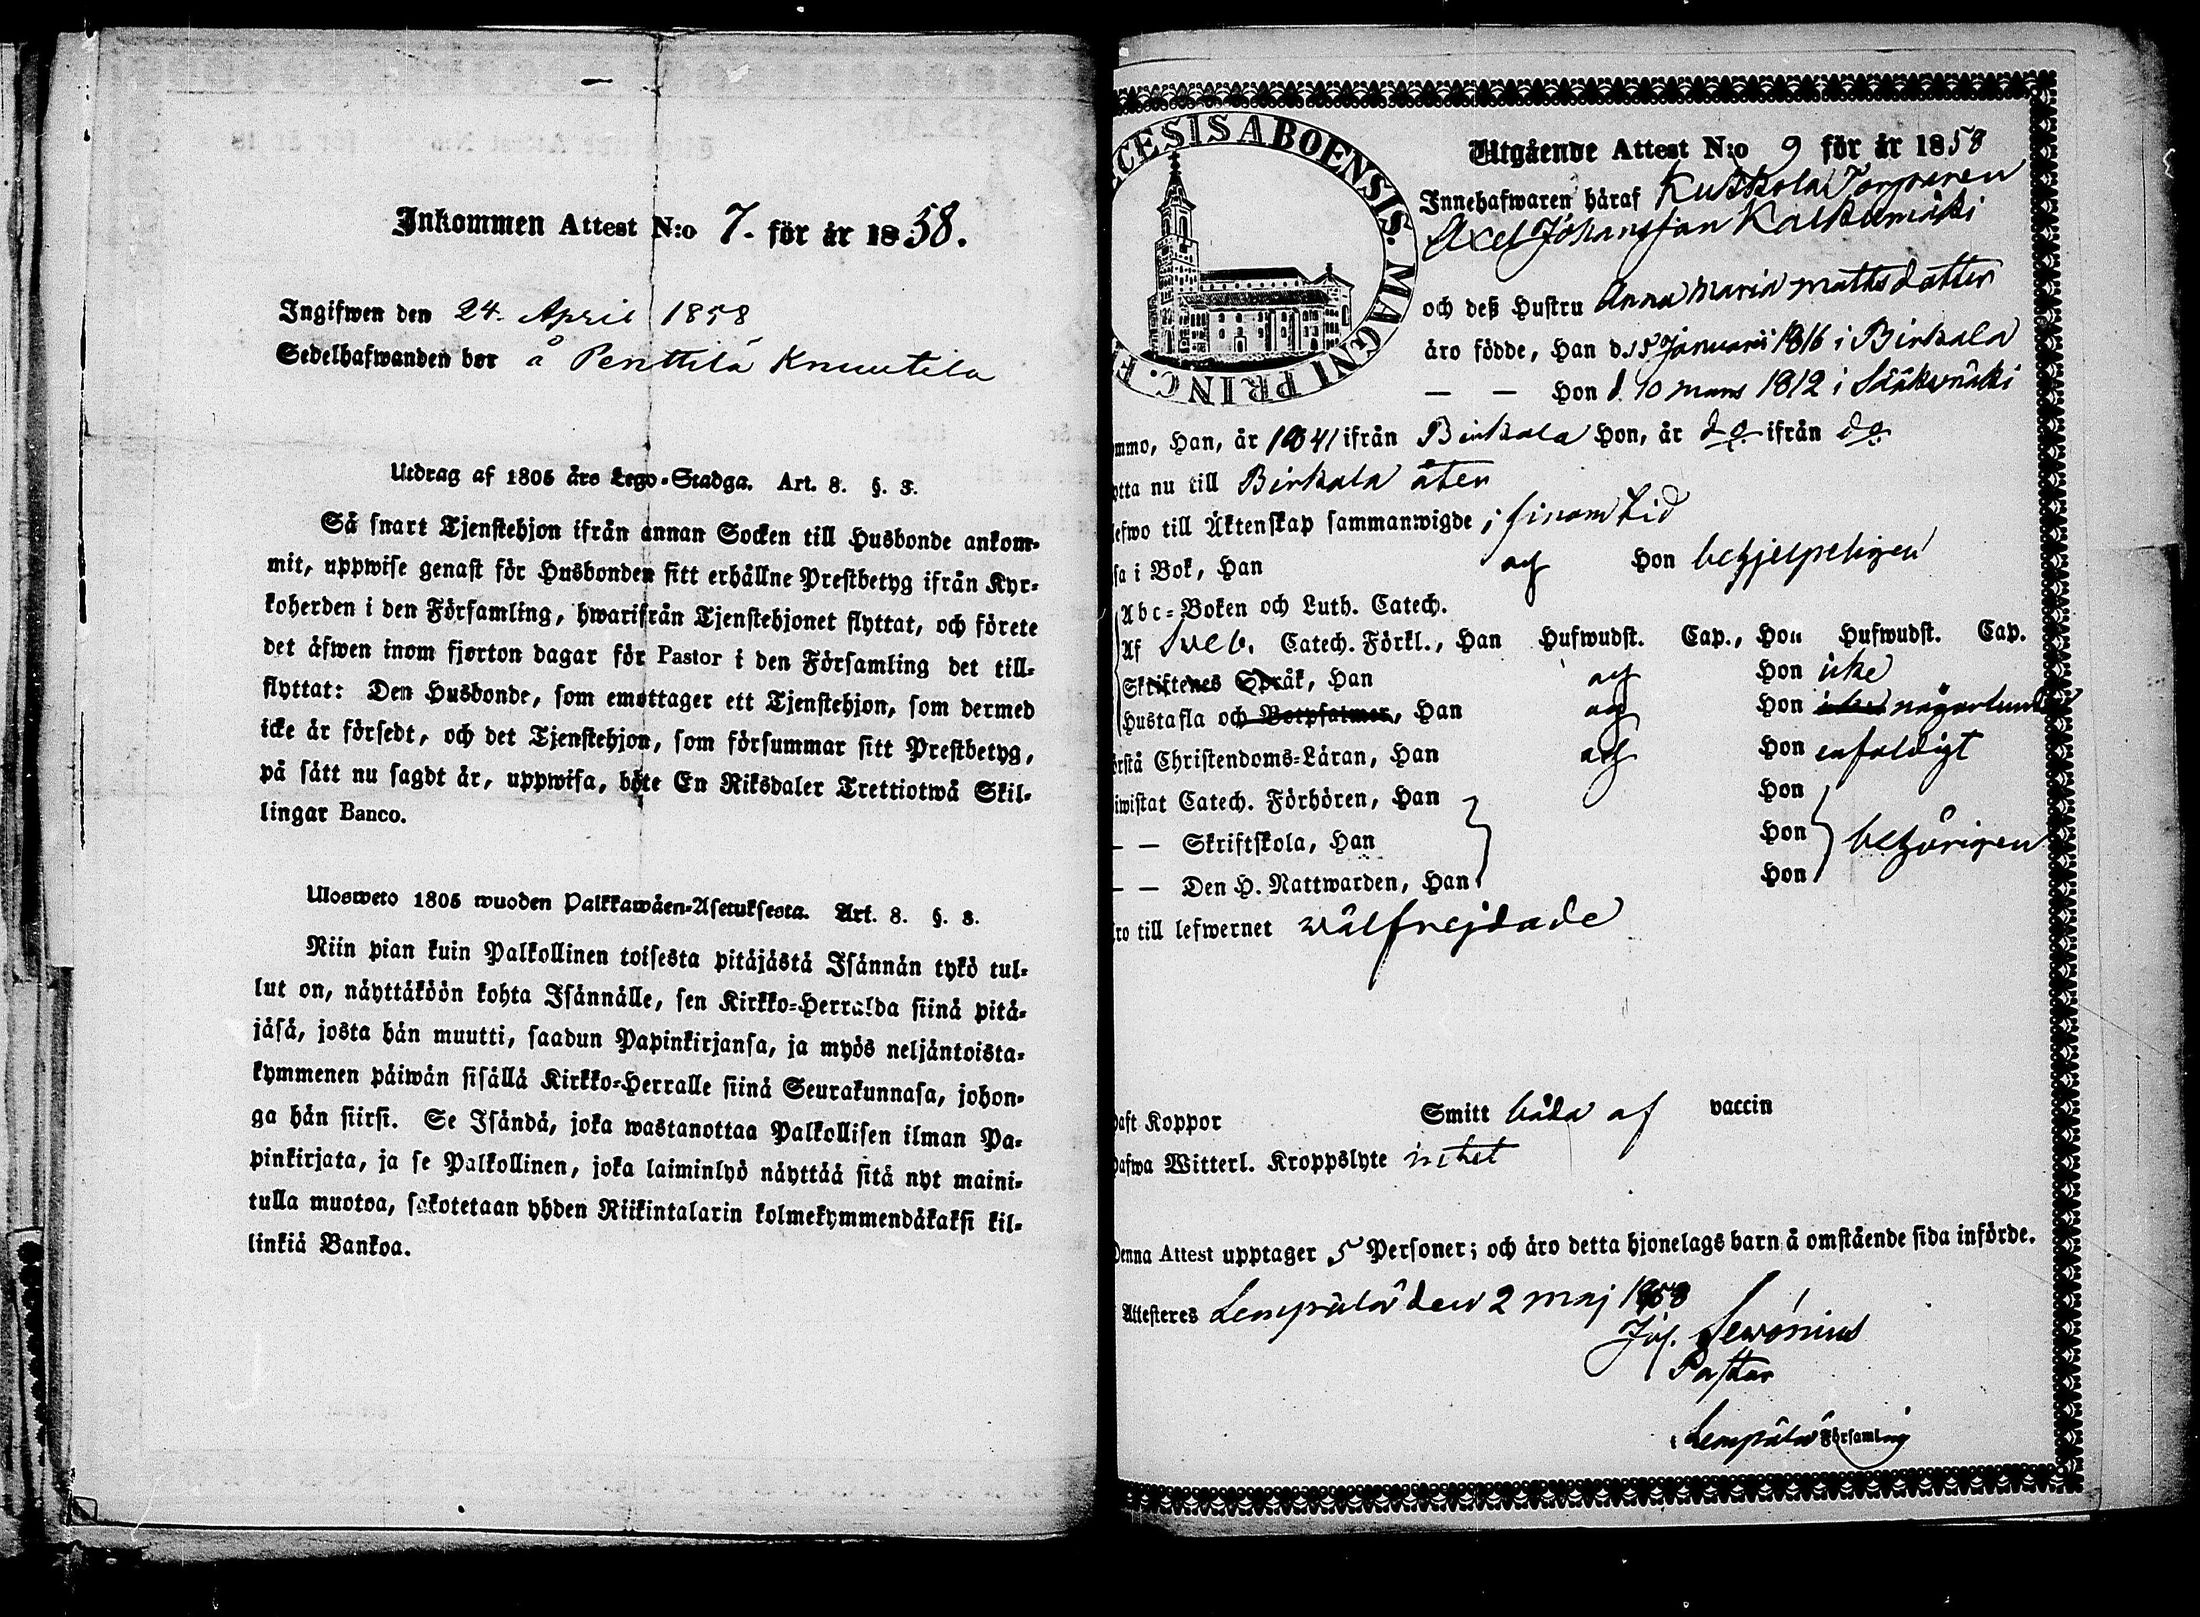 Inkommen Attest N:o 7. för år 1858.
Ingifwen den 24. April 1858
Sedelhafwanden bor å Penttilä Knuutila
Utdrag af 1805 års Lego-Stadga. Art. 8. §. 3.
Så snart Tjenstehjon ifrån annan Socken till Husbonde ankom-
mit, uppwise genast för Husbonden sitt erhållne Prestbetyg ifrån Kyr-
koherden i den Församling, hwarifrån Tjenstehjonet flyttat, och förete
det äfwen inom fjorton dagar för Pastor i den Församling det till-
flyttat: Den Husbonde, som emottager ett Tjenstehjon, som dermed
icke är försedt, och det Tjenstehjon, som försummar sitt Prestbetyg,
på sätt nu sagdt är, uppwisa, böte En Riksdaler Trettiotwå Skil-
lingar Banco.
Ulosweto 1805 wuoden Palkkawäen-Asetuksesta. Art. 8. §. 3.
Niin pian kuin Palkollinen toisesta pitäjästä Isännän tykö tul-
lut on, näyttäköön kohta Isännälle, sen Kirkko-Herralda siinä pitä-
jäsä, josta hän muutti, saadun Papinkirjansa, ja myös neljäntoista-
kymmenen päiwän sisällä Kirkko-Herralle siinä Seurakunnasa, johon-
ga hän siirsi. Se Isändä, joka wastanottaa Palkollisen ilman Pa-
pinkirjata, ja se Palkollinen, joka laiminlyö näyttää sitä nyt maini-
tulla muotoa, sakotetaan yhden Riikintalarin kolmekymmendäkaksi kil-
linkiä Bankoa.
CESIS ABOENSIS. MAGNI PRINC. F
Utgående Attest N:o 9 för år 1858
Innehafwaren häraf Kuskola Torparen
Axel Johansson Kalkunmäki
och deß Hustru Anna Maria Mattsdotter
äro födde, Han d. 15 Januarii 1816 i Birkala
— — Hon d. 10 Mars 1812 i Sääksmäki
ommo, Han, år 1841 ifrån Birkala Hon, år do ifrån do
ytta nu till Birkala åter
lefwo till Äktenskap sammanwigde i sinom tid
sa i Bok, Han Hon behjelpeligen
Abc-Boken och Luth. Catech.
Af Sveb. Catech. Förkl., Han Hufwudst. Cap., Hon Hufwudst. Cap.
Skriftenes Språk, Han Hon icke
Hustafla och Botpsalmer, Han Hon icke någorlunda
örstå Christendoms-Läran, Han Hon enfaldigt
iwistat Catech. Förhören, Han Hon
— — Skriftskola, Han Hon behörigen
— — Den H. Nattwarden, Han Hon
ro till lefwernet wälfrejdade
haft Koppor Smitt båda af vaccin
hafwa Witterl. Kroppslyte intet
Denna Attest upptager 5 Personer; och äro detta hjonelags barn å omstående sida införde.
Attesteres Lempäälä den 2 Maj 1858
Pastor
i Lempäälä Församling